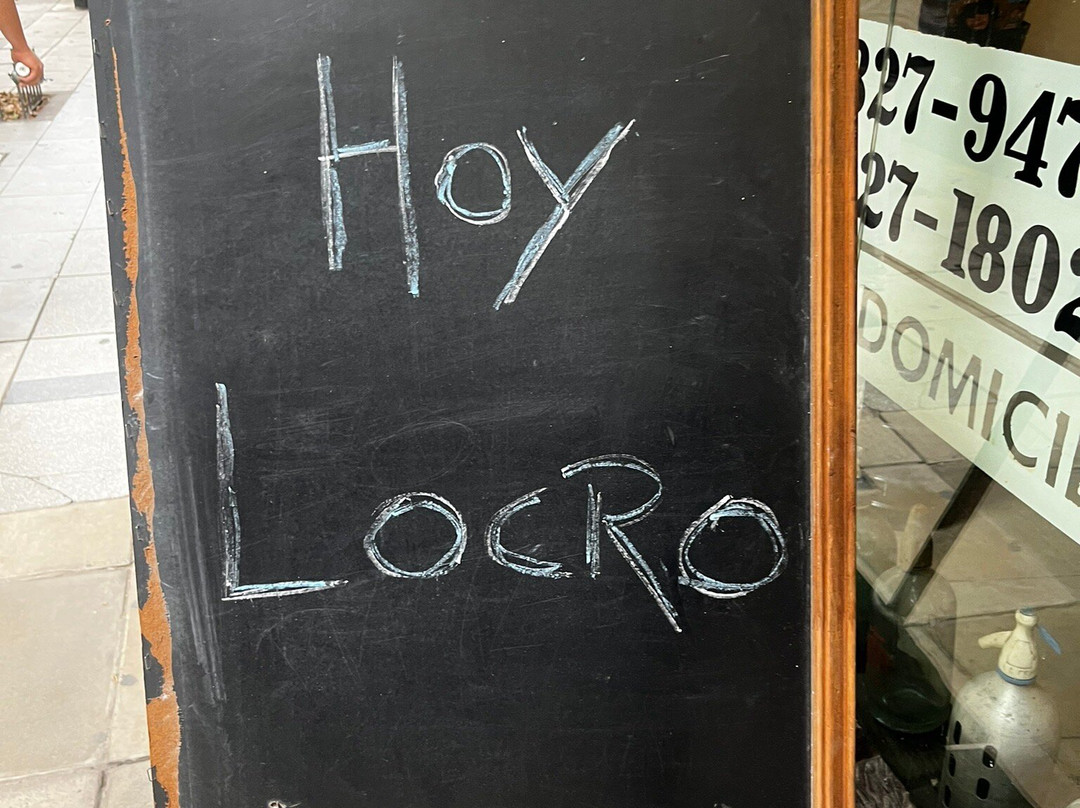 Hoy
LocRo
27-947
27-1802
DOMICIL